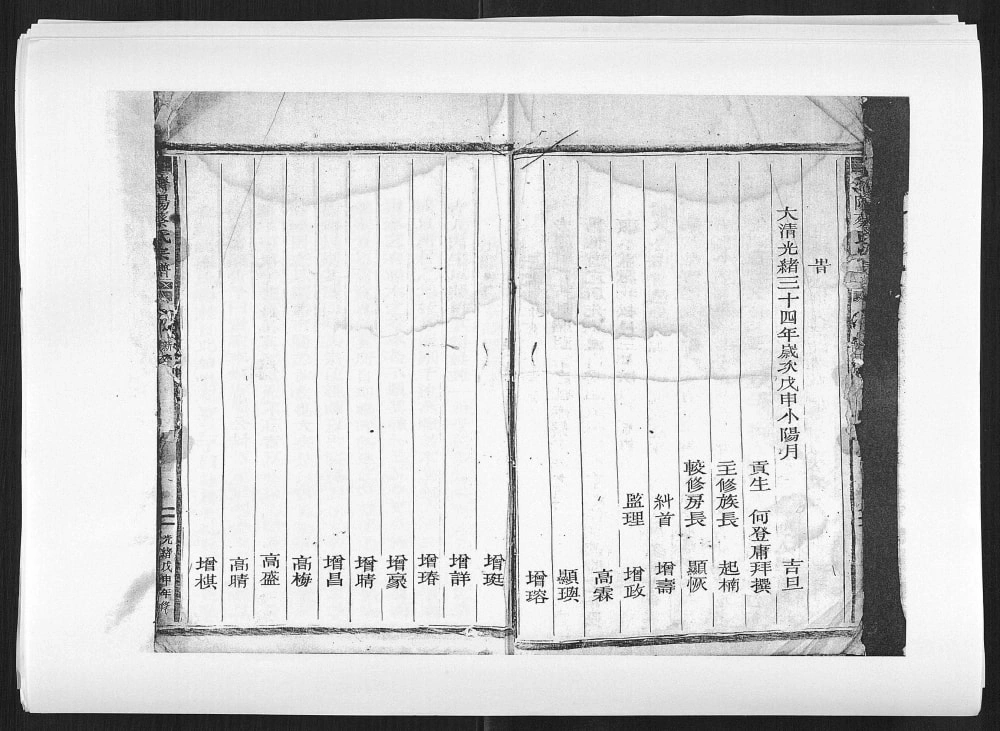 旹
大清光緒三十四年歲次戊申小陽月 吉旦
貢生 何登庸拜撰
主修族長 起楠
較修房長 顯恢
糾首 增壽
監理 增政
高霖
顯璵
增瑢
增珽
增詳
增瑃
增豪
增晴
增昌
高梅
高盛
高晴
增棋
濟陽蔡氏宗譜
光緒戊申年修